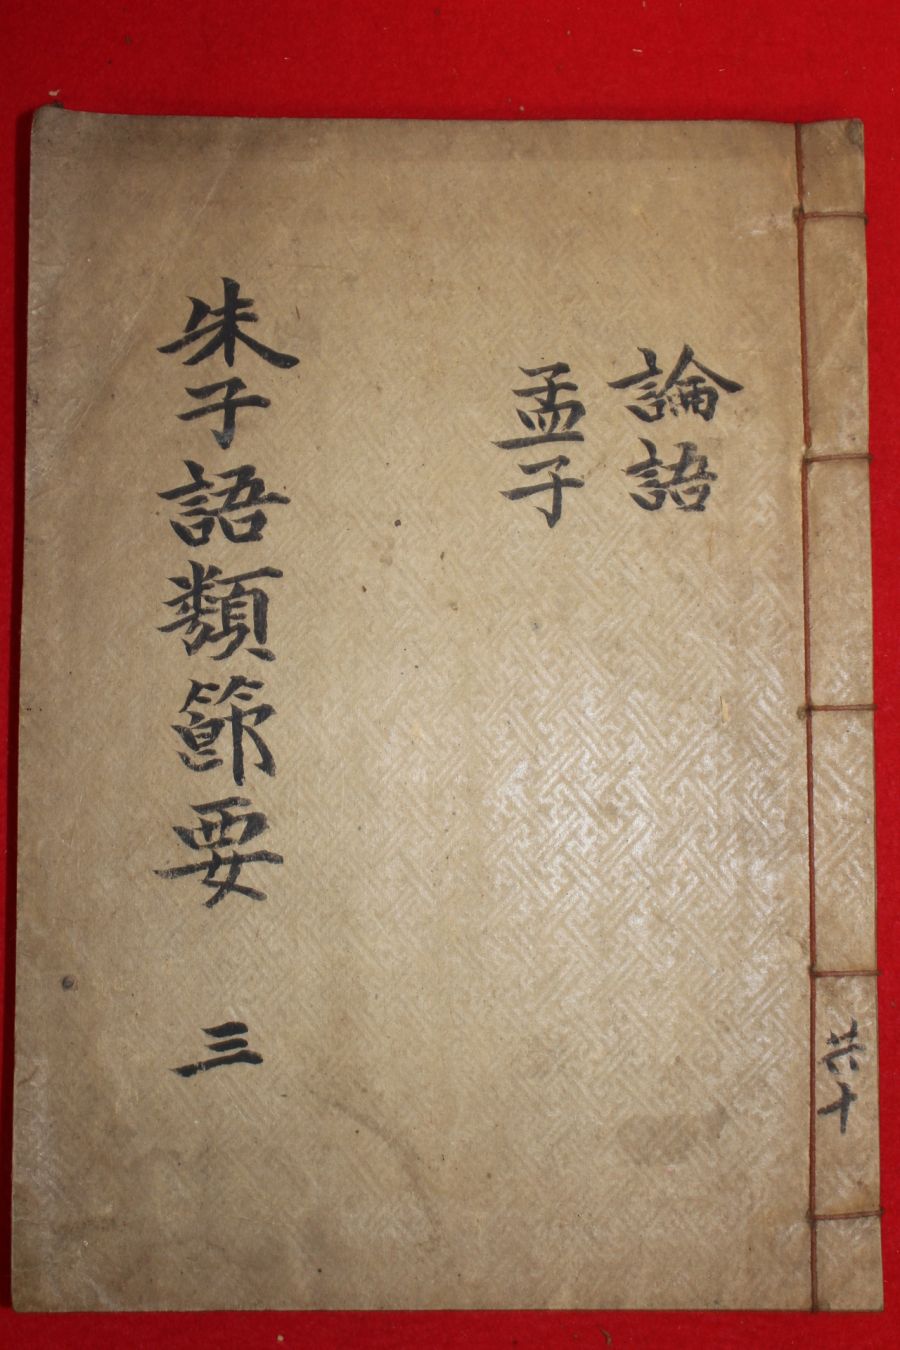 共十
論語
孟子
朱子語類節要 三